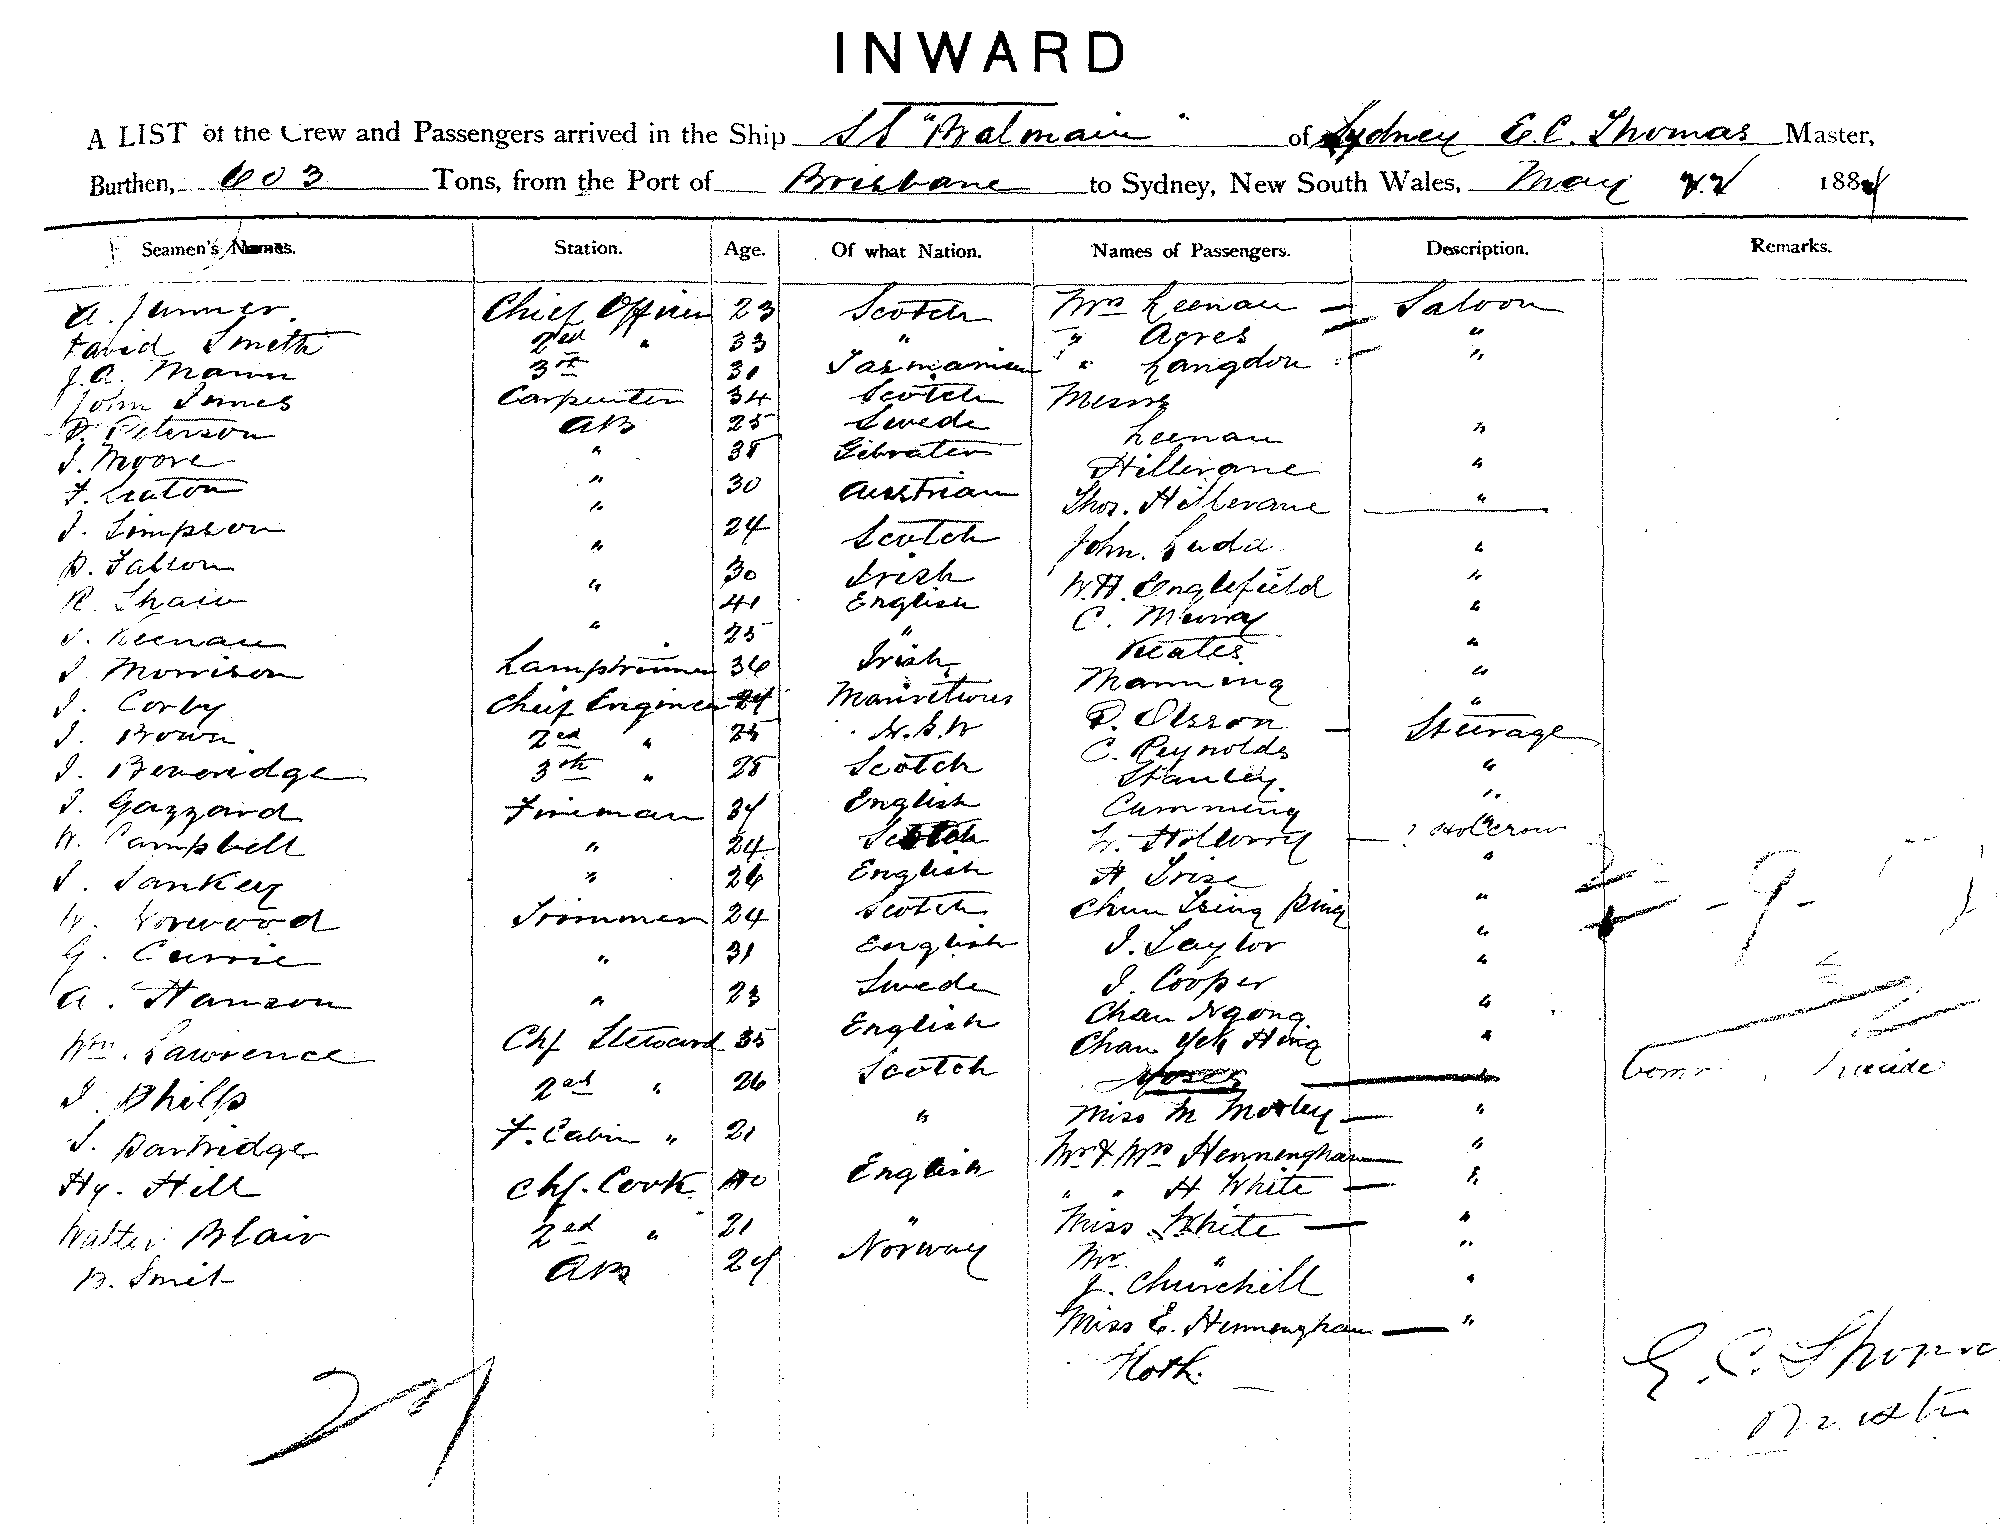 INWARD
A LIST of the Crew and Passengers arrived in the Ship SS "Balmain" of Sydney E.C. Thomas Master,
Burthen, 603 Tons, from the Port of Brisbane to Sydney, New South Wales, May 22 188
Seamen's Names. Station. Age. Of what Nation. Names of Passengers. Description. Remarks.
A. Junner. Chief Officer 23 Scotch Mrs Keenan — Saloon
David Smith 2nd " 33 " " Acres "
J. A. Mann 3rd 31 Tasmanian " Langdon "
John Innes Carpenter 34 Scotch Messrs
P. Peterson AB 25 Swede Keenan "
J. Moore " 38 Gibrater Hillerane "
F. " 30 Austrian Thos. Hillerane "
J. Simpson " 24 Scotch John. Ludd "
P. " 30 Irish W. H. Englefield "
R. Shaw " 41 English C. Murray "
J. Keenan " 25 " Keates "
J. Morrison Lamptrimmer 36 Irish Manning "
J. Corby Cheif Engineer 24 D. Olsson — Steerage
J. Brown 2nd " 25 N.S.W C. Reynolds
J. Beveridge 3rd " 28 Scotch Stanley "
J. Gazzard Fireman 34 English Cumming "
W. Campbell " 24 Scotch
J. Sankey " 26 English A "
W. Norwood Trimmer 24 Scotch Chun Tsing Ping "
G. Currie " 31 English J. Taylor "
A. Hanson " 23 Swede J. Cooper "
Chan Ngong "
Wm. Lawrence Chf Steward 35 English Chan Yek Hing "
J. Philp 2nd " 26 Scotch
J. Partridge F. Cabin " 21 " Miss M Morley — "
Mr & Mrs Henningham "
Hy. Hill Chf. Cook 40 English " " H White — "
Walter Blair 2nd " 21 " Miss White — "
B. Smit AB 24 Norway Mr. " "
J. Churchill "
Miss E. Henningham — "
Hoth.
27
E. C. Thomas
Master